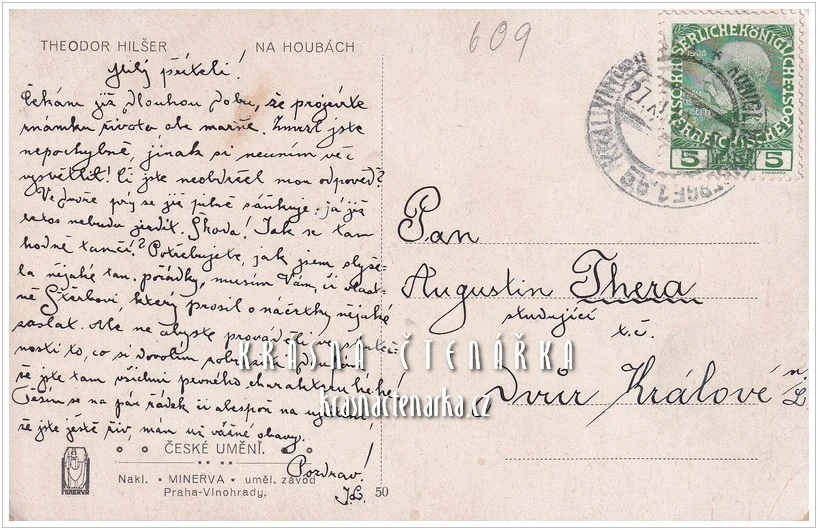 609
THEODOR HILŠER NA HOUBÁCH
Milý příteli!
Čekám již dlouhou dobu, že projevíte
známku života ale marně. Zmrzl jste
nepochybně, jinak si neumím věc
vysvětlit! Či jste neobdržel mou odpověď?
Ve Dvoře prý se již pilně sáňkuje: já již
letos nebudu jezdit. Škoda! Jak se tam
hodně tančí? Potřebujete, jak jsem slyše-
la nějaké tan. pořádky, musím Vám, či vlast-
ně Štěrbovi, který prosil o náčrtky nějaké
zaslat. Ale, ne abyste prováděli ve skuteč-
nosti to, co si dovolím
že jste tam všichni pevného charakteru hé hé!
Těším se na pár řádek či alespoň na
že jste ještě živ, mám už vážné obavy.
Pozdrav!
ČESKÉ UMĚNÍ.
MINERVA
Nakl. • MINERVA • uměl. závod
Praha-Vinohrady.
50
KAISERLICHE KÖNIGLICHE ÖSTERREICHISCHE POST
5 5
Pan
Augustin Thera
studující
t.č.
Dvůr Králové n/L
KRÁSNÁ ČTENÁŘKA
krasnactenarka.cz